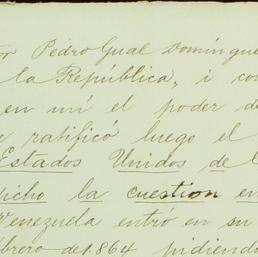 or Pedro Gual Domíngue
la República, i con
en mí el poder de
ratificó luego el
Estados Unidos de l
dicho la cuestion en
Venezuela entró en su
brero de 1864 pidiend